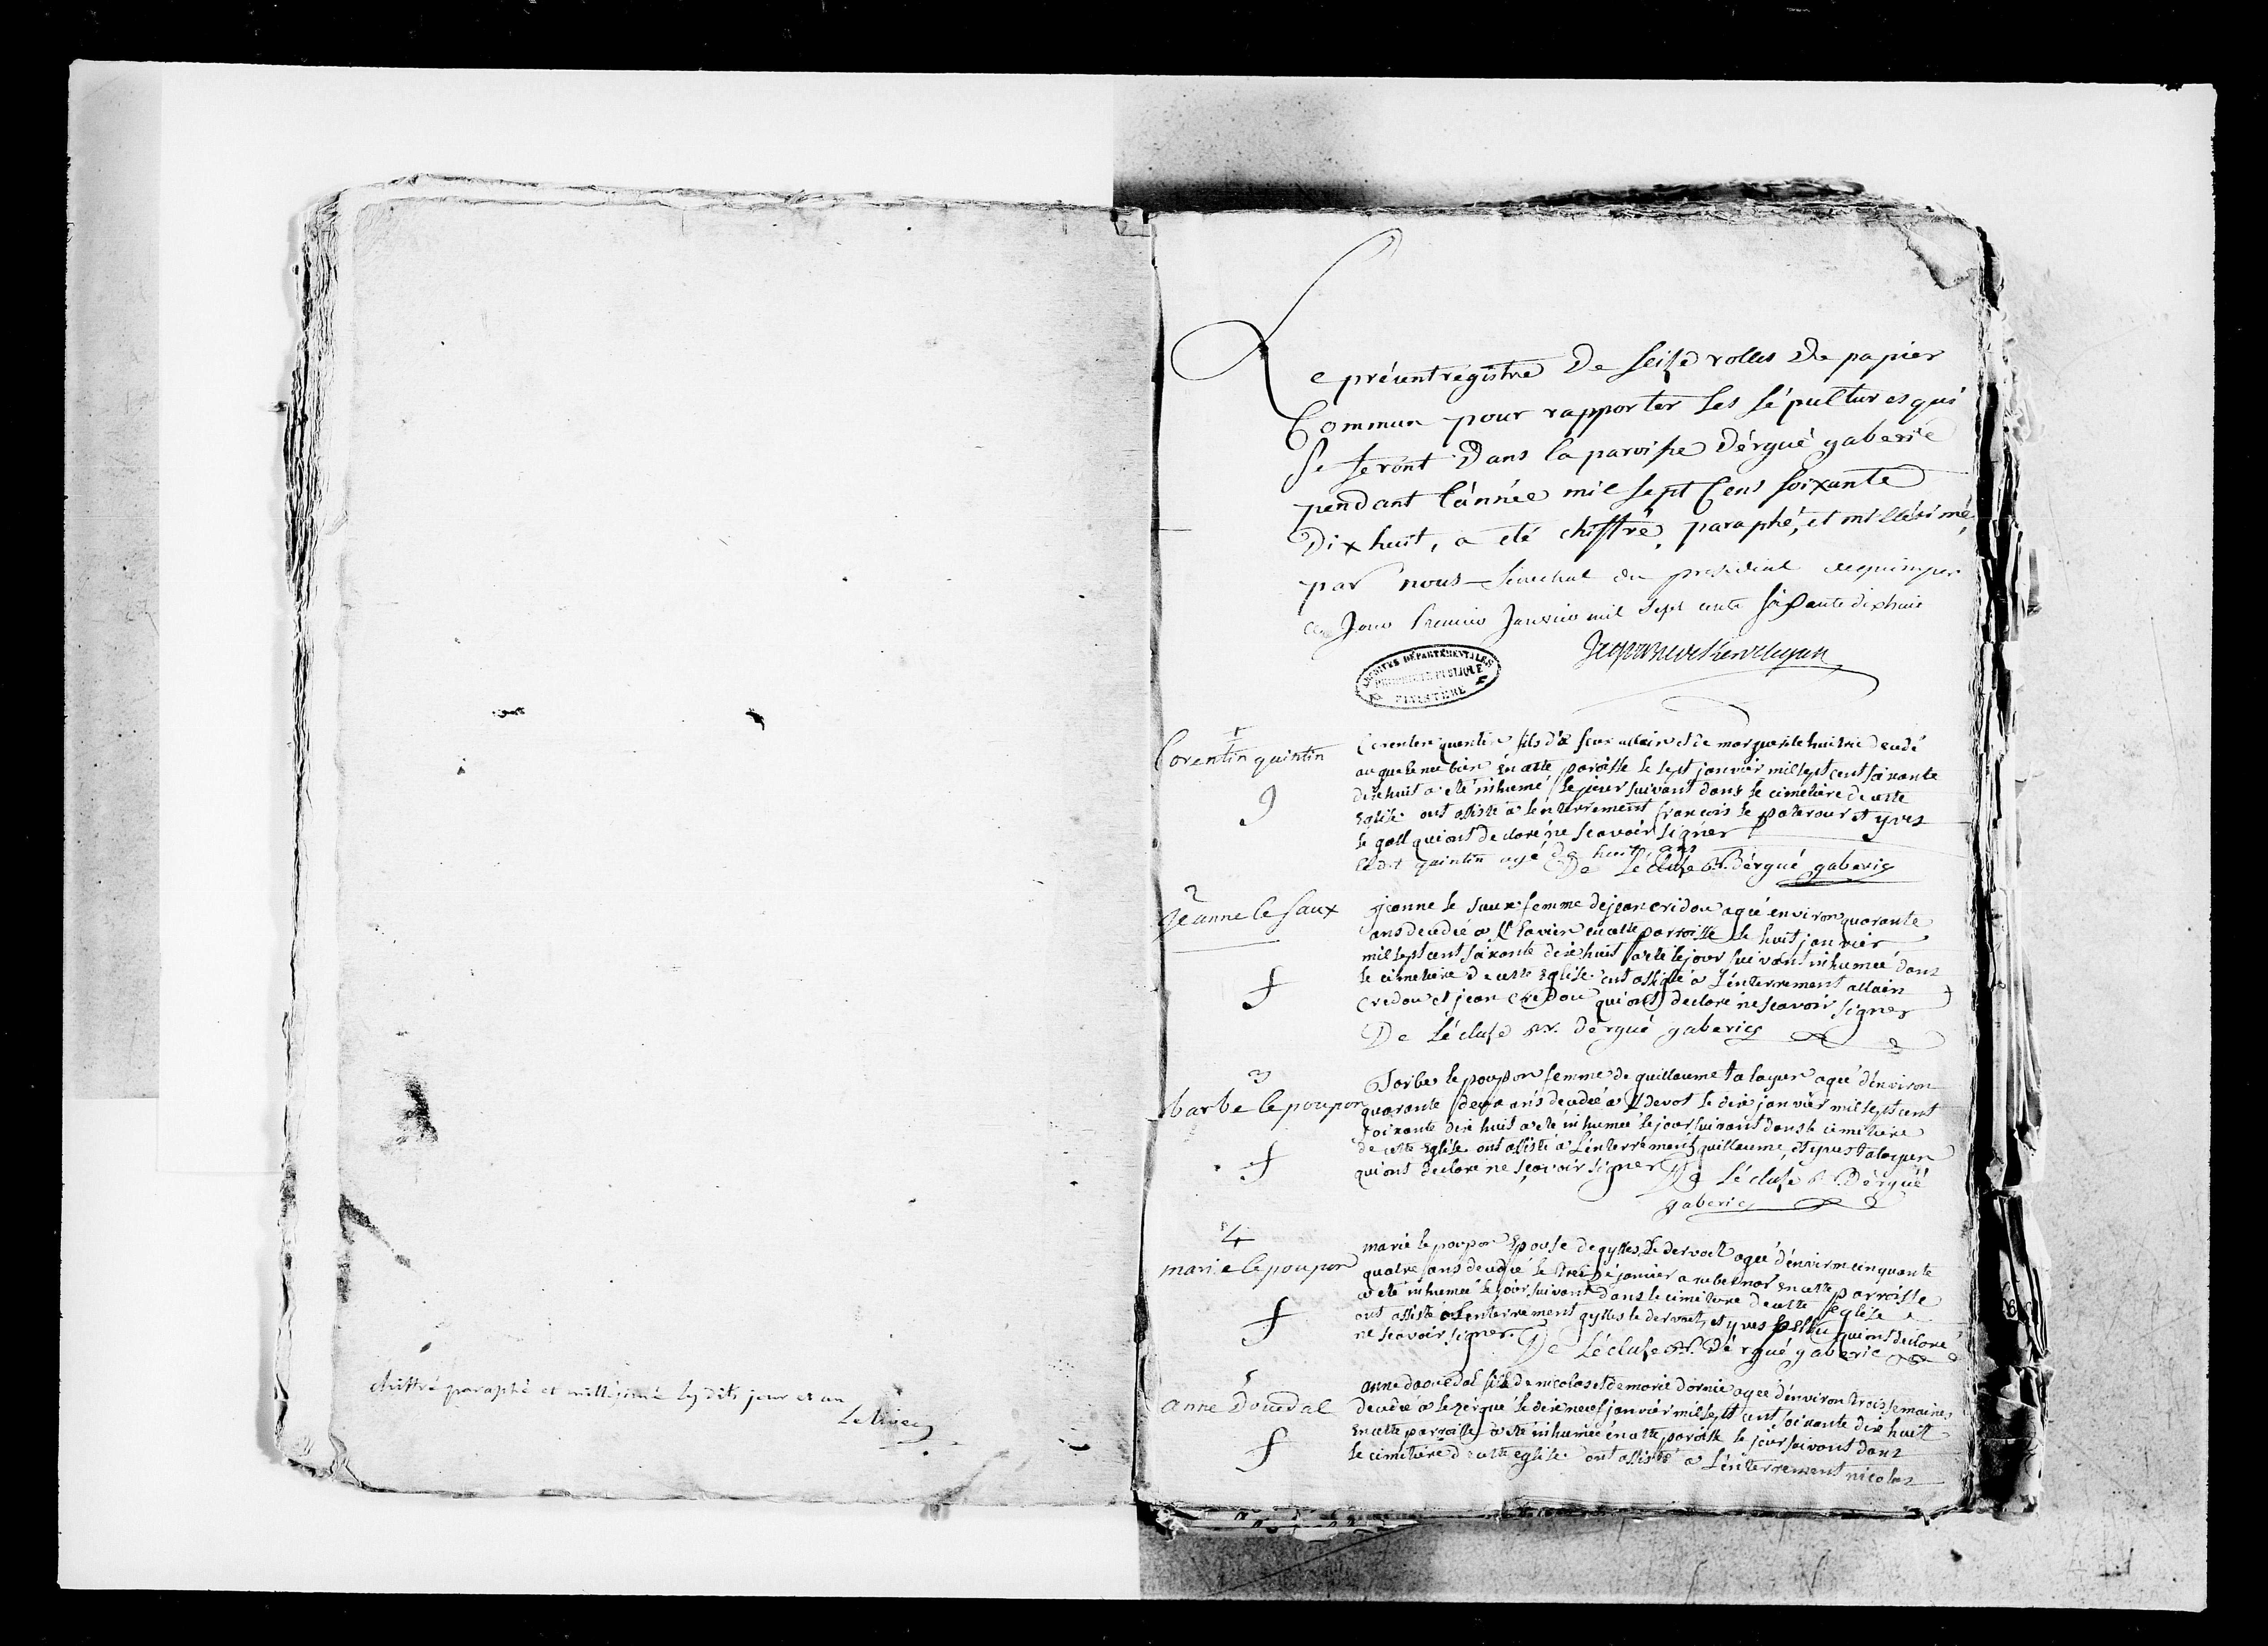 chiffré paraphé et millésimé les dits jour et an
Le présent registre De seize rolles De papier
Commun pour rapporter les sépultures qui
se feront Dans la paroisse Dérgué gaberic
pendant l'année mil sept Cens soixante
Dix huit, a été chiffré, paraphé, et millésimé,
par nous Sénéchal du présidial de quimper
ce Jour premier Janvier mil sept cents soixante dix huit
ARCHIVES DÉPARTEMENTALES
PROPRIÉTÉ PUBLIQUE
FINISTÈRE
1
Corentin quintin
g
Corentin quentin fils de feux allain et de marguerite decedé
en cette paroisse le sept janvier mil sept cent soixante
dix huit a été inhumé le jour suivant dans le cimetière de cette
Eglise ont assisté a lenterrement françois le et yves
le goll qui ont declaré ne scavoir signer
ledit quintin agé de huit ans
De Lécluse Dérgué gaberic
2
jeanne le saux
f
jeanne le saux femme de jean credou agée environ quarante
ans decedée a en cette parroisse le huit janvier
mil sept cent soixante dix huit a été le jour suivant inhumée dans
le cimetière de cette Eglise ont assisté a L'enterrement allain
credou et jean credou qui ont declaré ne scavoir signer
De Lécluse dérgué gaberic
3
barbe le poupon
f
Barbe le poupon femme de guillaume talaguen agée d'environ
quarante deux ans decedée a le dix janvier mil sept cent
soixante dix huit a été inhumée le jour suivant dans le cimetière
de cette Eglise ont assisté a L'enterrement guillaume, et yves talaguen
qui ont declaré ne scavoir signer De Lécluse Dérgué
gaberic
4
marie le poupon
f
marie le poupon Epouse de gylles le dervoet agée d'environ cinquante
quatre ans decedée le treize janvier a en cette parroisse
a été inhumée le jour suivant dans le cimetière de cette Eglise
ont assisté a Lenterrement gylles le dervoet, et yves qui ont declaré
ne scavoir signer. De Lécluse Dérgué gaberic
5
anne Douedal
f
anne daouedal fille de nicolas et de marie agée d'environ trois semaines
decedée a le dix neuf janvier mil sept cent soixante dix huit
en cette parroisse a été inhumée en cette paroisse le jour suivant dans
le cimetière de cette eglise ont assisté a L'enterrement nicolas